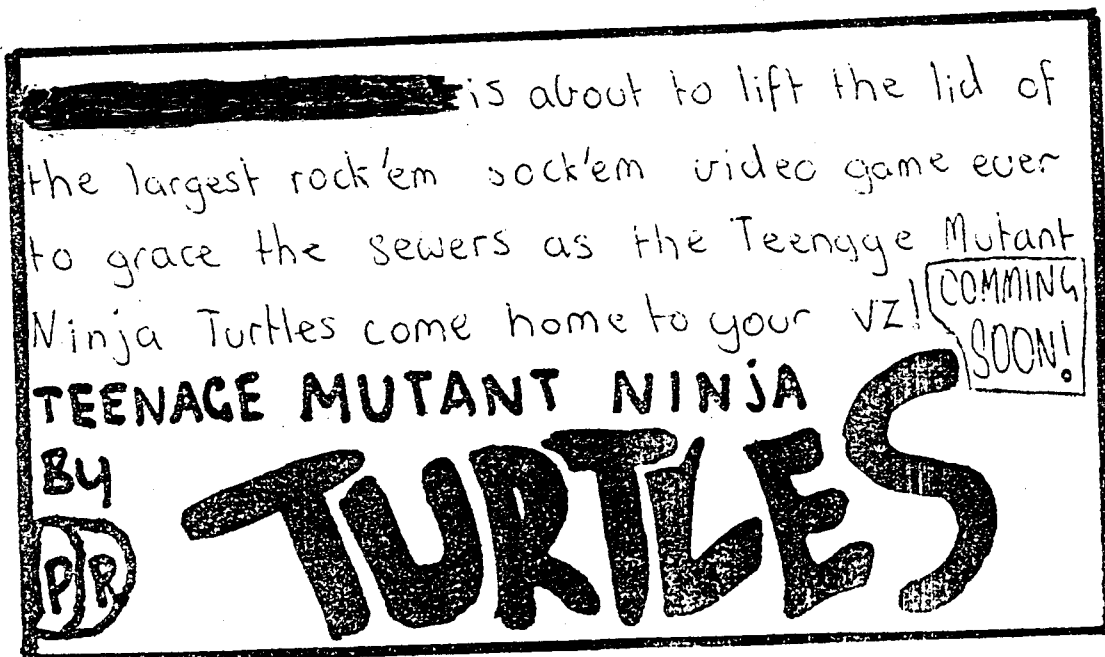 is about to lift the lid of
the largest rock'em sock'em video game ever
to grace the sewers as the Teenage Mutant
Ninja Turtles come home to your VZ!
COMMING
SOON!
TEENAGE MUTANT NINJA
TURTLES
By
PR